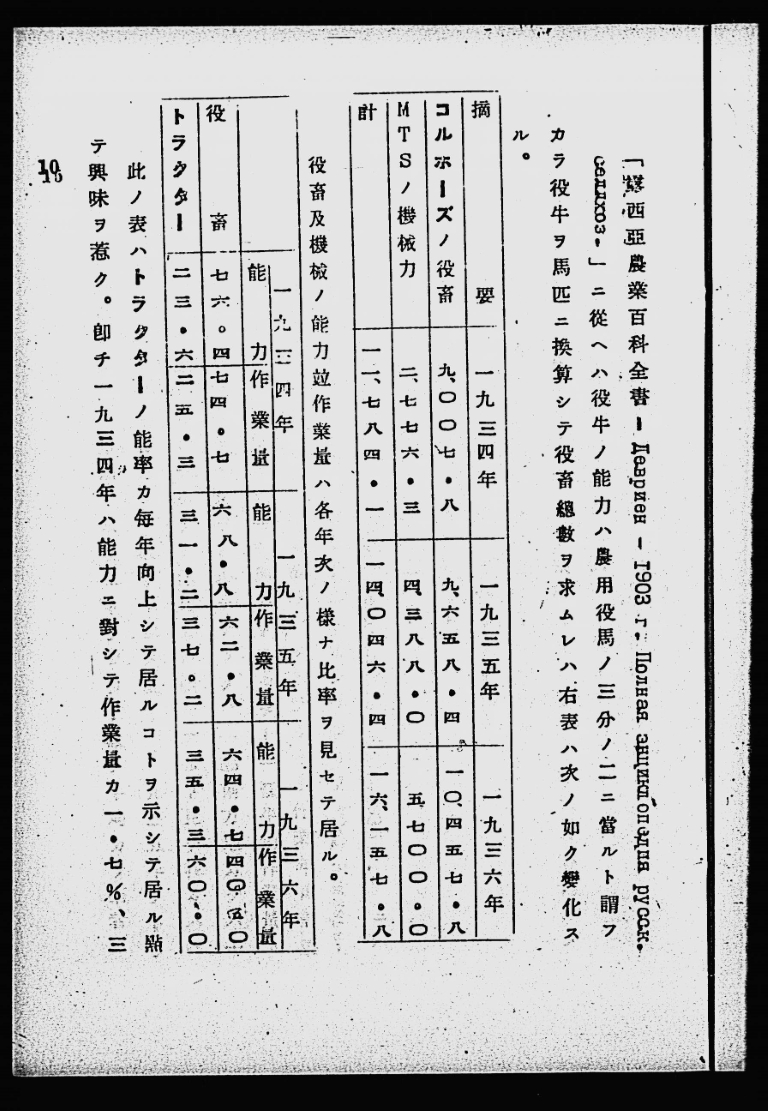 「露西亞農業百科全書ー Девриен － 1903 г. Полная энциклопедия русск.
селлхоз.」ニ從ヘハ役牛ノ能力ハ農用役馬ノ三分ノ二ニ當ルト謂フ
カラ役牛ヲ馬匹ニ換算シテ役畜總數ヲ求ムレハ右表ハ次ノ如ク變化ス
ル。
摘要 一九三四年 一九三五年 一九三六年
コルホーズノ役畜 九、〇〇七・八 九、六五八・四 一〇、四五七・八
MTSノ機械力 二、七七六・三 四、三八八・〇 五、七〇〇・〇
計 一一、七八四・一 一四、〇四六・四 一六、一五七・八
役畜及機械ノ能力竝作業量ハ各年次ノ樣ナ比率ヲ見セテ居ル。
一九三四年 一九三五年 一九三六年
能力 作業量 能力 作業量 能力 作業量
役畜 七六。四 七四。七 六八・八 六二・八 六四・七 四〇・〇
トラクター 二三・六 二五・三 三一・二 三七。二 三五・三 六〇・〇
此ノ表ハトラクターノ能率カ每年向上シテ居ルコトヲ示シテ居ル點
テ興味ヲ惹ク。卽チ一九三四年ハ能力ニ對シテ作業量カ一・七％、三